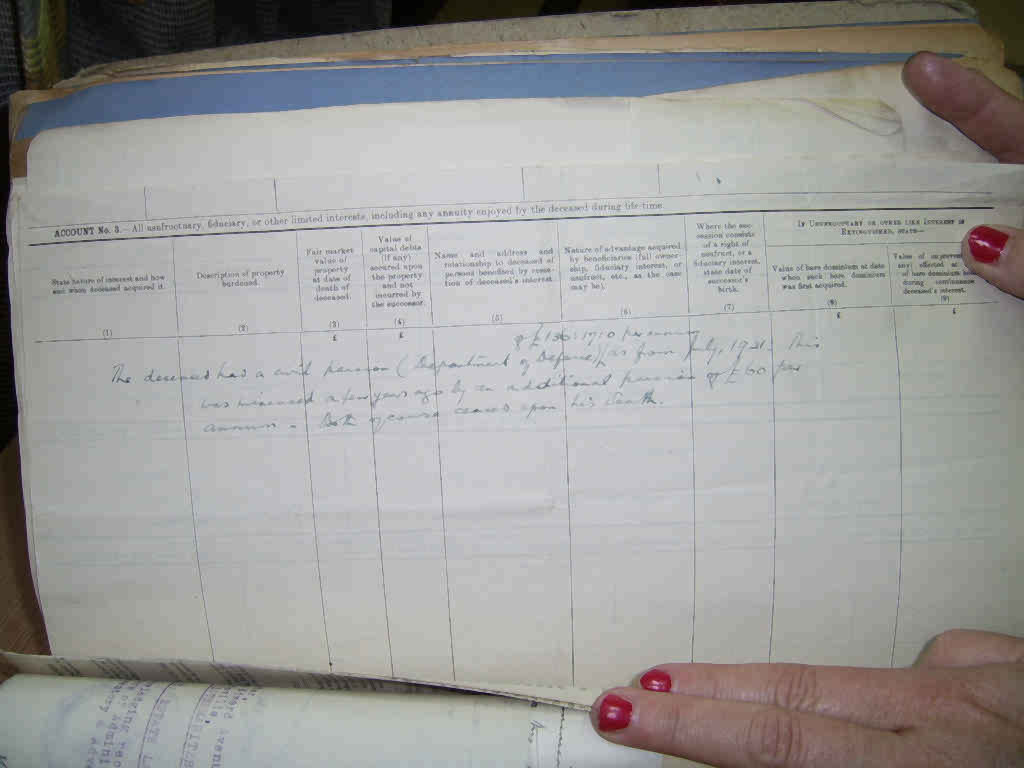 ACCOUNT No. 3.—All usufructuary, fiduciary, or other limited interests, including any annuity enjoyed by the deceased during life-time
State nature of interest and how and whom deceased acquired it.
(1)
Description of property burdened.
(2)
Fair market value of property at date of death of deceased.
(3)
£
Value of capital debits (if any) secured upon the property and not incurred by the successor.
(4)
£
Name and address and relationship to deceased of persons benefited by cessation of deceased's interest.
(5)
Nature of advantage acquired by beneficiaries (full ownership, fiduciary interest, or usufruct, etc., as the case may be).
(6)
Where the succession consists of a right of usufruct, or a fiduciary interest, state date of successor's birth.
(7)
If Usufructuary or other like Interest is Extinguished, state—
Value of bare dominium at date when such bare dominium was first acquired.
(8)
£
Value of improvements any) effected
of bare dominium
during continuance
deceased's interest.
(9)
£
of £136:17:0 per annum
The deceased has a civil pension (Department of Defence) as from July, 1921. This
was increased a few years ago by an additional pension of £60 per
annum. Both of course ceased upon his death.